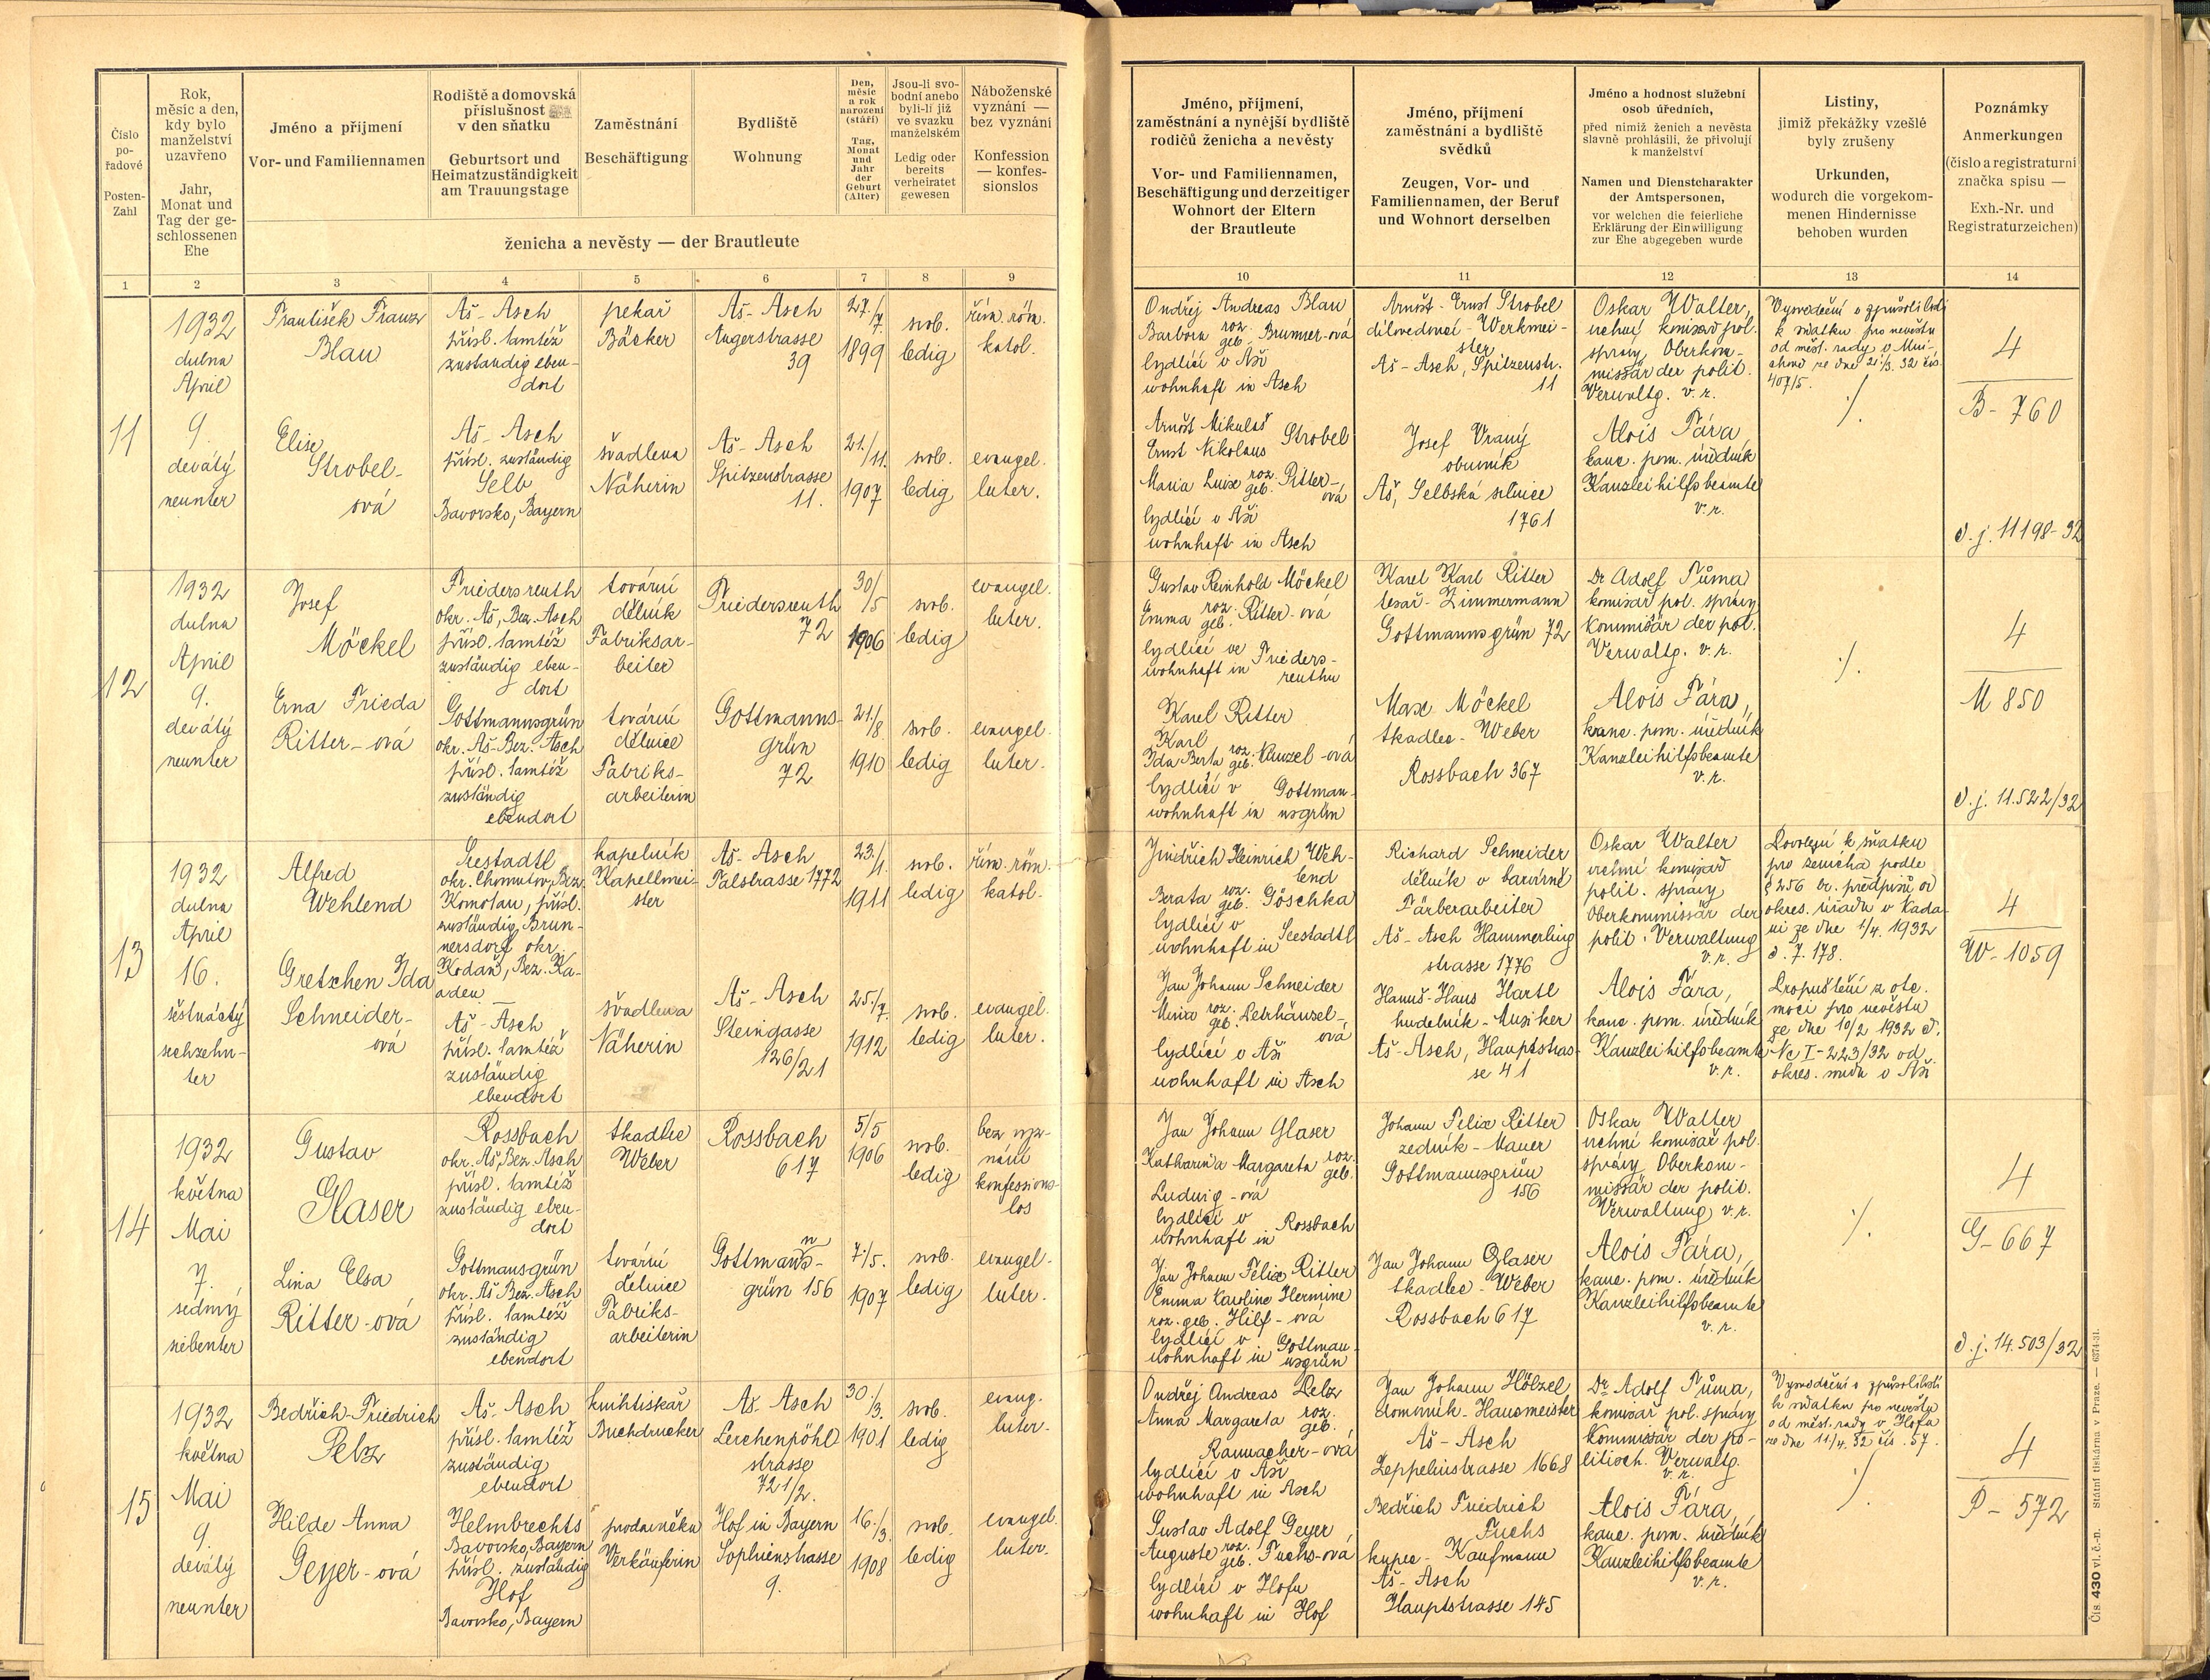 Číslo
po-
řadové
Posten-
Zahl
Rok,
měsíc a den,
kdy bylo
manželství
uzavřeno
Jahr,
Monat und
Tag der ge-
schlossenen
Ehe
Jméno a příjmení
Vor- und Familiennamen
Rodiště a domovská
příslušnost
v den sňatku
Geburtsort und
Heimatzuständigkeit
am Trauungstage
Zaměstnání
Beschäftigung
Bydliště
Wohnung
Den,
měsíc
a rok
narození
(stáří)
Tag,
Monat
und
Jahr
der
Geburt
(Alter)
Jsou-li svo-
bodní anebo
byli-li již
ve svazku
manželském
Ledig oder
bereits
verheiratet
gewesen
Náboženské
vyznání —
bez vyznání
Konfession
— konfes-
sionslos
ženicha a nevěsty — der Brautleute
Jméno, příjmení,
zaměstnání a nynější bydliště
rodičů ženicha a nevěsty
Vor- und Familiennamen,
Beschäftigung und derzeitiger
Wohnort der Eltern
der Brautleute
Jméno, příjmení
zaměstnání a bydliště
svědků
Zeugen, Vor- und
Familiennamen, der Beruf
und Wohnort derselben
Jméno a hodnost služební
osob úředních,
před nimiž ženich a nevěsta
slavně prohlásili, že přivolují
k manželství
Namen und Dienstcharakter
der Amtspersonen,
vor welchen die feierliche
Erklärung der Einwilligung
zur Ehe abgegeben wurde
Listiny,
jimiž překážky vzešlé
byly zrušeny
Urkunden,
wodurch die vorgekom-
menen Hindernisse
behoben wurden
Poznámky
Anmerkungen
(číslo a registraturní
značka spisu —
Exh.-Nr. und
Registraturzeichen)
1 2 3 4 5 6 7 8 9 10 11 12 13 14
11
1932
dubna
April
9.
devátý
neunter
František Franz
Blau
Aš - Asch
přísl. tamtéž
zuständig eben-
dort
pekař
Bäcker
Aš - Asch
Angerstrasse
39
27./7.
1899
svob.
ledig
řím. röm.
katol.
Elise
Strobel-
ová
Aš - Asch
přísl. zuständig
Selb
Bavorsko, Bayern
švadlena
Näherin
Aš - Asch
Spitzenstrasse
11.
21./11.
1907
svob.
ledig
evangel.
luter.
Ondřej Andreas Blau
Barbora roz. geb. Brunner-ová
bydlící v Aši
wohnhaft in Asch
Arnošt Mikuláš
Ernst Nikolaus Strobel
Maria Luise roz. geb. Ritter-
ová
bydlící v Aši
wohnhaft in Asch
Arnošt - Ernst Strobel
dílovedoucí - Werkmei-
ster
Aš - Asch, Spitzenstr.
11
Josef Vraný
obuvník
Aš, Selbská silnice
1761
Oskar Walter,
vrchní komisař pol.
správy, Oberkom-
missär der polit.
Verwaltg. v. r.
Alois Fára
kanc. pom. úředník
Kanzleihilfsbeamte
v. r.
Vysvědčení o způsobilosti
k sňatku pro nevěstu
od měst. rady v Mni-
chově ze dne 21./3. 32 čís.
407/5.
./.
4
B - 760
d. j. 11198-32
12
1932
dubna
April
9.
devátý
neunter
Josef
Möckel
Friedersreuth
okr. Aš, Bez. Asch
přísl. tamtéž
zuständig eben-
dort
tovární
dělník
Fabriksar-
beiter
Friedersreuth
72
30/5
1906
svob.
ledig
evangel.
luter.
Erna Frieda
Ritter-ová
Gottmannsgrün
okr. Aš - Bez. Asch
přísl. tamtéž
zuständig
ebendort
tovární
dělnice
Fabriks-
arbeiterin
Gottmanns-
grün
72
21./8.
1910
svob.
ledig
evangel.
luter.
Gustav Reinhold Möckel
Emma roz. geb. Ritter-ová
bydlící ve
wohnhaft in Frieders-
reuthu
Karel Ritter
Karl
Ida Berta roz. geb. Künzel-ová
bydlící v Gottman-
wohnhaft in nsgrün
Karel Karl Ritter
tesař - Zimmermann
Gottmannsgrün 72
Max Möckel
tkadlec - Weber
Rossbach 367
Dr Adolf Tůma
komisař pol. správy
Kommisär der pol.
Verwaltg. v. r.
Alois Fára,
kanc. pom. úředník
Kanzleihilfsbeamte
v. r.
./.
4
M 850
d. j. 11.522/32
13
1932
dubna
April
16.
šestnáctý
sechzehn-
ter
Alfred
Wehlend
Seestadtl
okr. Chomutov, Bez.
Komotau, přísl.
zuständig Brun-
nersdorf okr.
Kodaň, Bez. Ka-
aden
kapelník
Kapellmei-
ster
Aš - Asch
Talstrasse 1772
23./1.
1911
svob.
ledig
řím. röm.
katol.
Gretchen Ida
Schneider-
ová
Aš - Asch
přísl. tamtéž
zuständig
ebendort
švadlena
Näherin
Aš - Asch
Steingasse
126/21
25./7.
1912
svob.
ledig
evangel.
luter.
Jindřich Heinrich Weh-
lend
Berata roz. geb. Göschka
bydlící v
wohnhaft in Seestadtl
Jan Johann Schneider
Minna roz. geb.
ová
bydlící v Aši
wohnhaft in Asch
Richard Schneider
dělník v barvírně
Färberarbeiter
Aš - Asch Hammerling
strasse 1776
Hanuš - Hans Hartl
hudebník - Musiker
Aš - Asch, Hauptstras-
se 41
Oskar Walter
vrchní komisař
polit. správy
Oberkommissär der
polit. Verwaltung
v. r.
Alois Fára,
kanc. pom. úředník
Kanzleihilfsbeamte
v. r.
Dovolení k sňatku
pro ženicha podle
§ 256 br. předpisů od
okres. úřadu v Kada-
ni ze dne 1/4. 1932
d. 7. 178.
Propuštění z otc.
moci pro nevěstu
ze dne 10/2 1932 d.
Nc I - 223/32 od
okres. soudu v Aši
4
W - 1059
14
1932
května
Mai
7.
sedmý
siebenter
Gustav
Glaser
Rossbach
okr. Aš, Bez. Asch
přísl. tamtéž
zuständig eben-
dort
tkadlec
Weber
Rossbach
617
5/5
1906
svob.
ledig
bez vyz-
nání
konfessions-
los
Lina Elsa
Ritter-ová
Gottmansgrün
okr. Aš Bez. Asch
přísl. tamtéž
zuständig
ebendort
tovární
dělnice
Fabriks-
arbeiterin
Gottmanns-
grün 156
7./5.
1907
svob.
ledig
evangel.
luter.
Jan Johann Glaser
Katharina Margareta roz. geb.
Ludwig-ová
bydlící v
wohnhaft in Rossbach
Jan Johann Felix Ritter
Emma Karoline Hermine
roz. geb. Hilf-ová
bydlící v Gottman-
wohnhaft in nsgrün
Johann Felix Ritter
zedník - Mauer
Gottmannsgrün
156
Jan Johann Glaser
tkadlec - Weber
Rossbach 617
Oskar Walter
vrchní komisař pol.
správy, Oberkom-
missär der polit.
Verwaltung v. r.
Alois Fára,
kanc. pom. úředník
Kanzleihilfsbeamte
v. r.
./.
4
G - 667
d. j. 14.503/32
15
1932
května
Mai
9.
devátý
neunter
Bedřich-Friedrich
Pelz
Aš - Asch
přísl. tamtéž
zuständig
ebendort
knihtiskař
Buchdrucker
Aš - Asch
Lerchenpöhl
strasse
72 1/2.
30./3.
1901
svob.
ledig
evang.
luter.
Hilde Anna
Geyer-ová
Helmbrechts
Bavorsko, Bayern
přísl. zuständig
Hof
Bavorsko, Bayern
prodavačka
Verkäuferin
Hof in Bayern
Sophienstrasse
9.
16./3.
1908
svob.
ledig
evangel.
luter.
Ondřej Andreas Pelz
Anna Margareta roz. geb.
Ramacher-ová
bydlící v Aši
wohnhaft in Asch
Gustav Adolf Geyer
Auguste roz. geb. Fuchs-ová
bydlící v Hofu
wohnhaft in Hof
Jan Johann Hölzel
domovník - Hausmeister
Aš - Asch
Zeppelinstrasse 1668
Bedřich Friedrich
Fuchs
kupec - Kaufmann
Aš - Asch
Hauptstrasse 145
Dr Adolf Tůma,
komisař pol. správy
Kommissär der po-
litisch. Verwaltg.
v. r.
Alois Fára,
kanc. pom. úředník
Kanzleihilfsbeamte
v. r.
Vysvědčení o způsobilosti
k sňatku pro nevěstu
od měst. rady v Hofu
ze dne 11/4. 32 čís. 57.
./.
4
P - 572
Čís. 430 vl. č.-n. Státní tiskárna v Praze. — 6374-31.